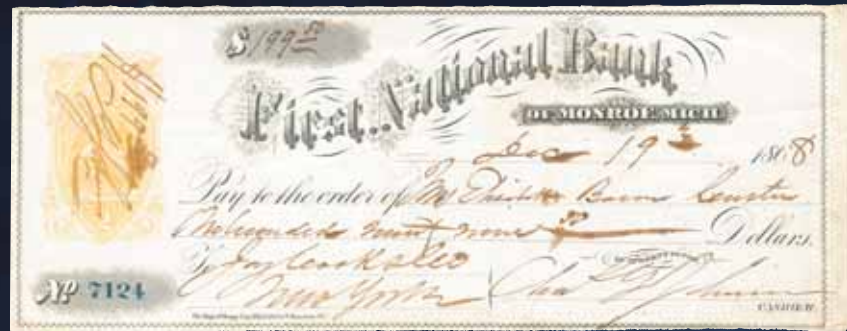 $199 50
First National Bank
OF MONROE MICH
Dec 19 1868
Pay to the order of Mrs Elizabeth Bacon Custer
One hundred ninety nine 50 Dollars.
To Jay Cooke & Co
New York Chas
CASHIER.
No 7124